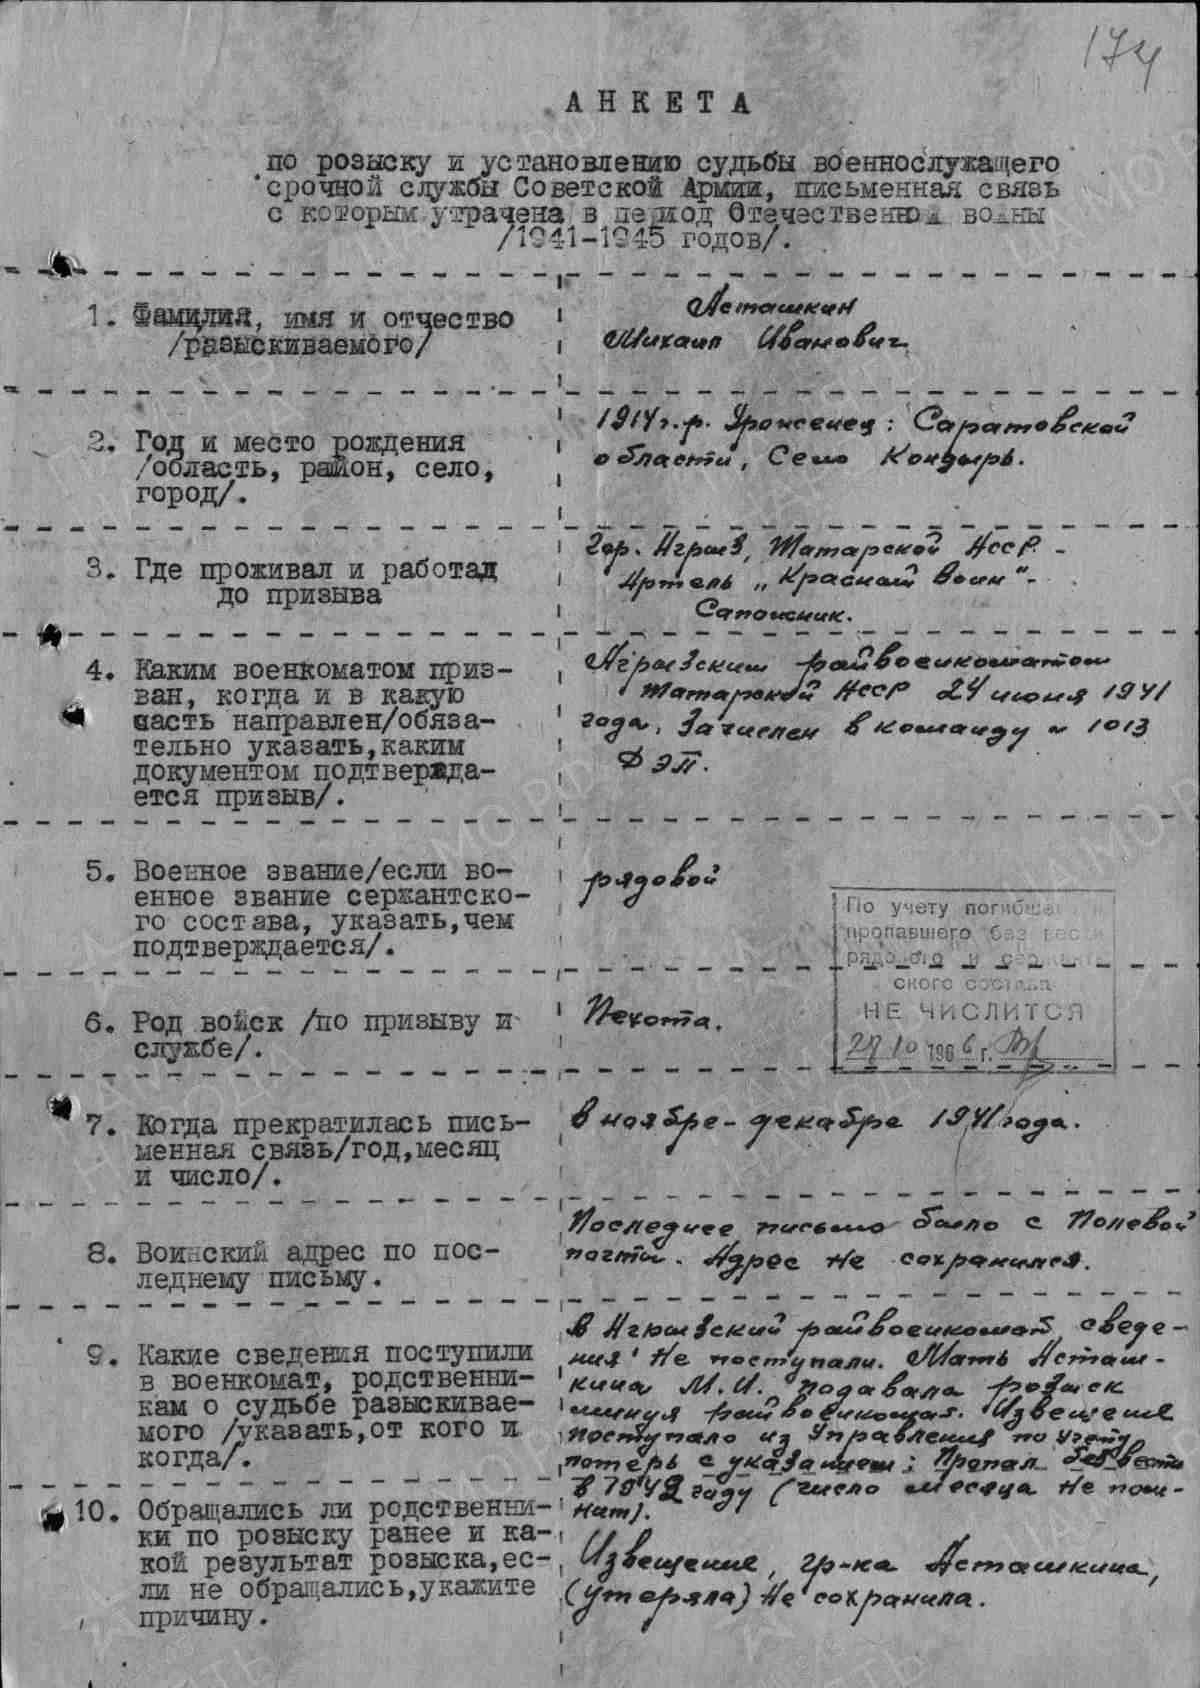 174
АНКЕТА
по розыску и установлению судьбы военнослужащего
срочной службы Советской Армии, письменная связь
с которым утрачена в период Отечественной войны
/1941-1945 годов/.
1. Фамилия, имя и отчество
/разыскиваемого/
Асташкин
Михаил Иванович
2. Год и место рождения
/область, район, село,
город/.
1914г.р. Уроженец: Саратовской
области, Село Кондырь.
3. Где проживал и работал
до призыва
Гор. Агрыз, Татарской АССР -
Артель „Красный Воин" -
Сапожник.
4. Каким военкоматом приз-
ван, когда и в какую
часть направлен/обяза-
тельно указать,каким
документом подтвержда-
ется призыв/.
Агрызским райвоенкоматом
Татарской АССР 24 июня 1941
года. Зачислен в команду № 1013
ДЭП.
5. Военное звание/если во-
енное звание сержантско-
го состава, указать,чем
подтверждается/.
рядовой
По учету погибшего и
пропавшего без вести
рядового и сержант-
ского состава
НЕ ЧИСЛИТСЯ
27 10 1966 г.
6. Род войск /по призыву и
службе/.
Пехота.
7. Когда прекратилась пись-
менная связь/год,месяц
и число/.
в ноябре-декабре 1941 года.
8. Воинский адрес по пос-
леднему письму.
Последнее письмо было с Полевой
почты. Адрес не сохранился.
9. Какие сведения поступили
в военкомат, родственни-
кам о судьбе разыскивае-
мого /указать,от кого и
когда/.
в Агрызский райвоенкомат, сведе-
ния не поступали. Мать Асташ-
кина М.И. подавала розыск
минуя райвоенкомат. Извещение
поступало из Управления по учету
потерь с указанием: Пропал без вести
в 1942 году (число месяца не пом-
нит).
10. Обращались ли родственни-
ки по розыску ранее и ка-
кой результат розыска,ес-
ли не обращались,укажите
причину.
Извещение, гр-ка Асташкина,
(утеряла) не сохранила.